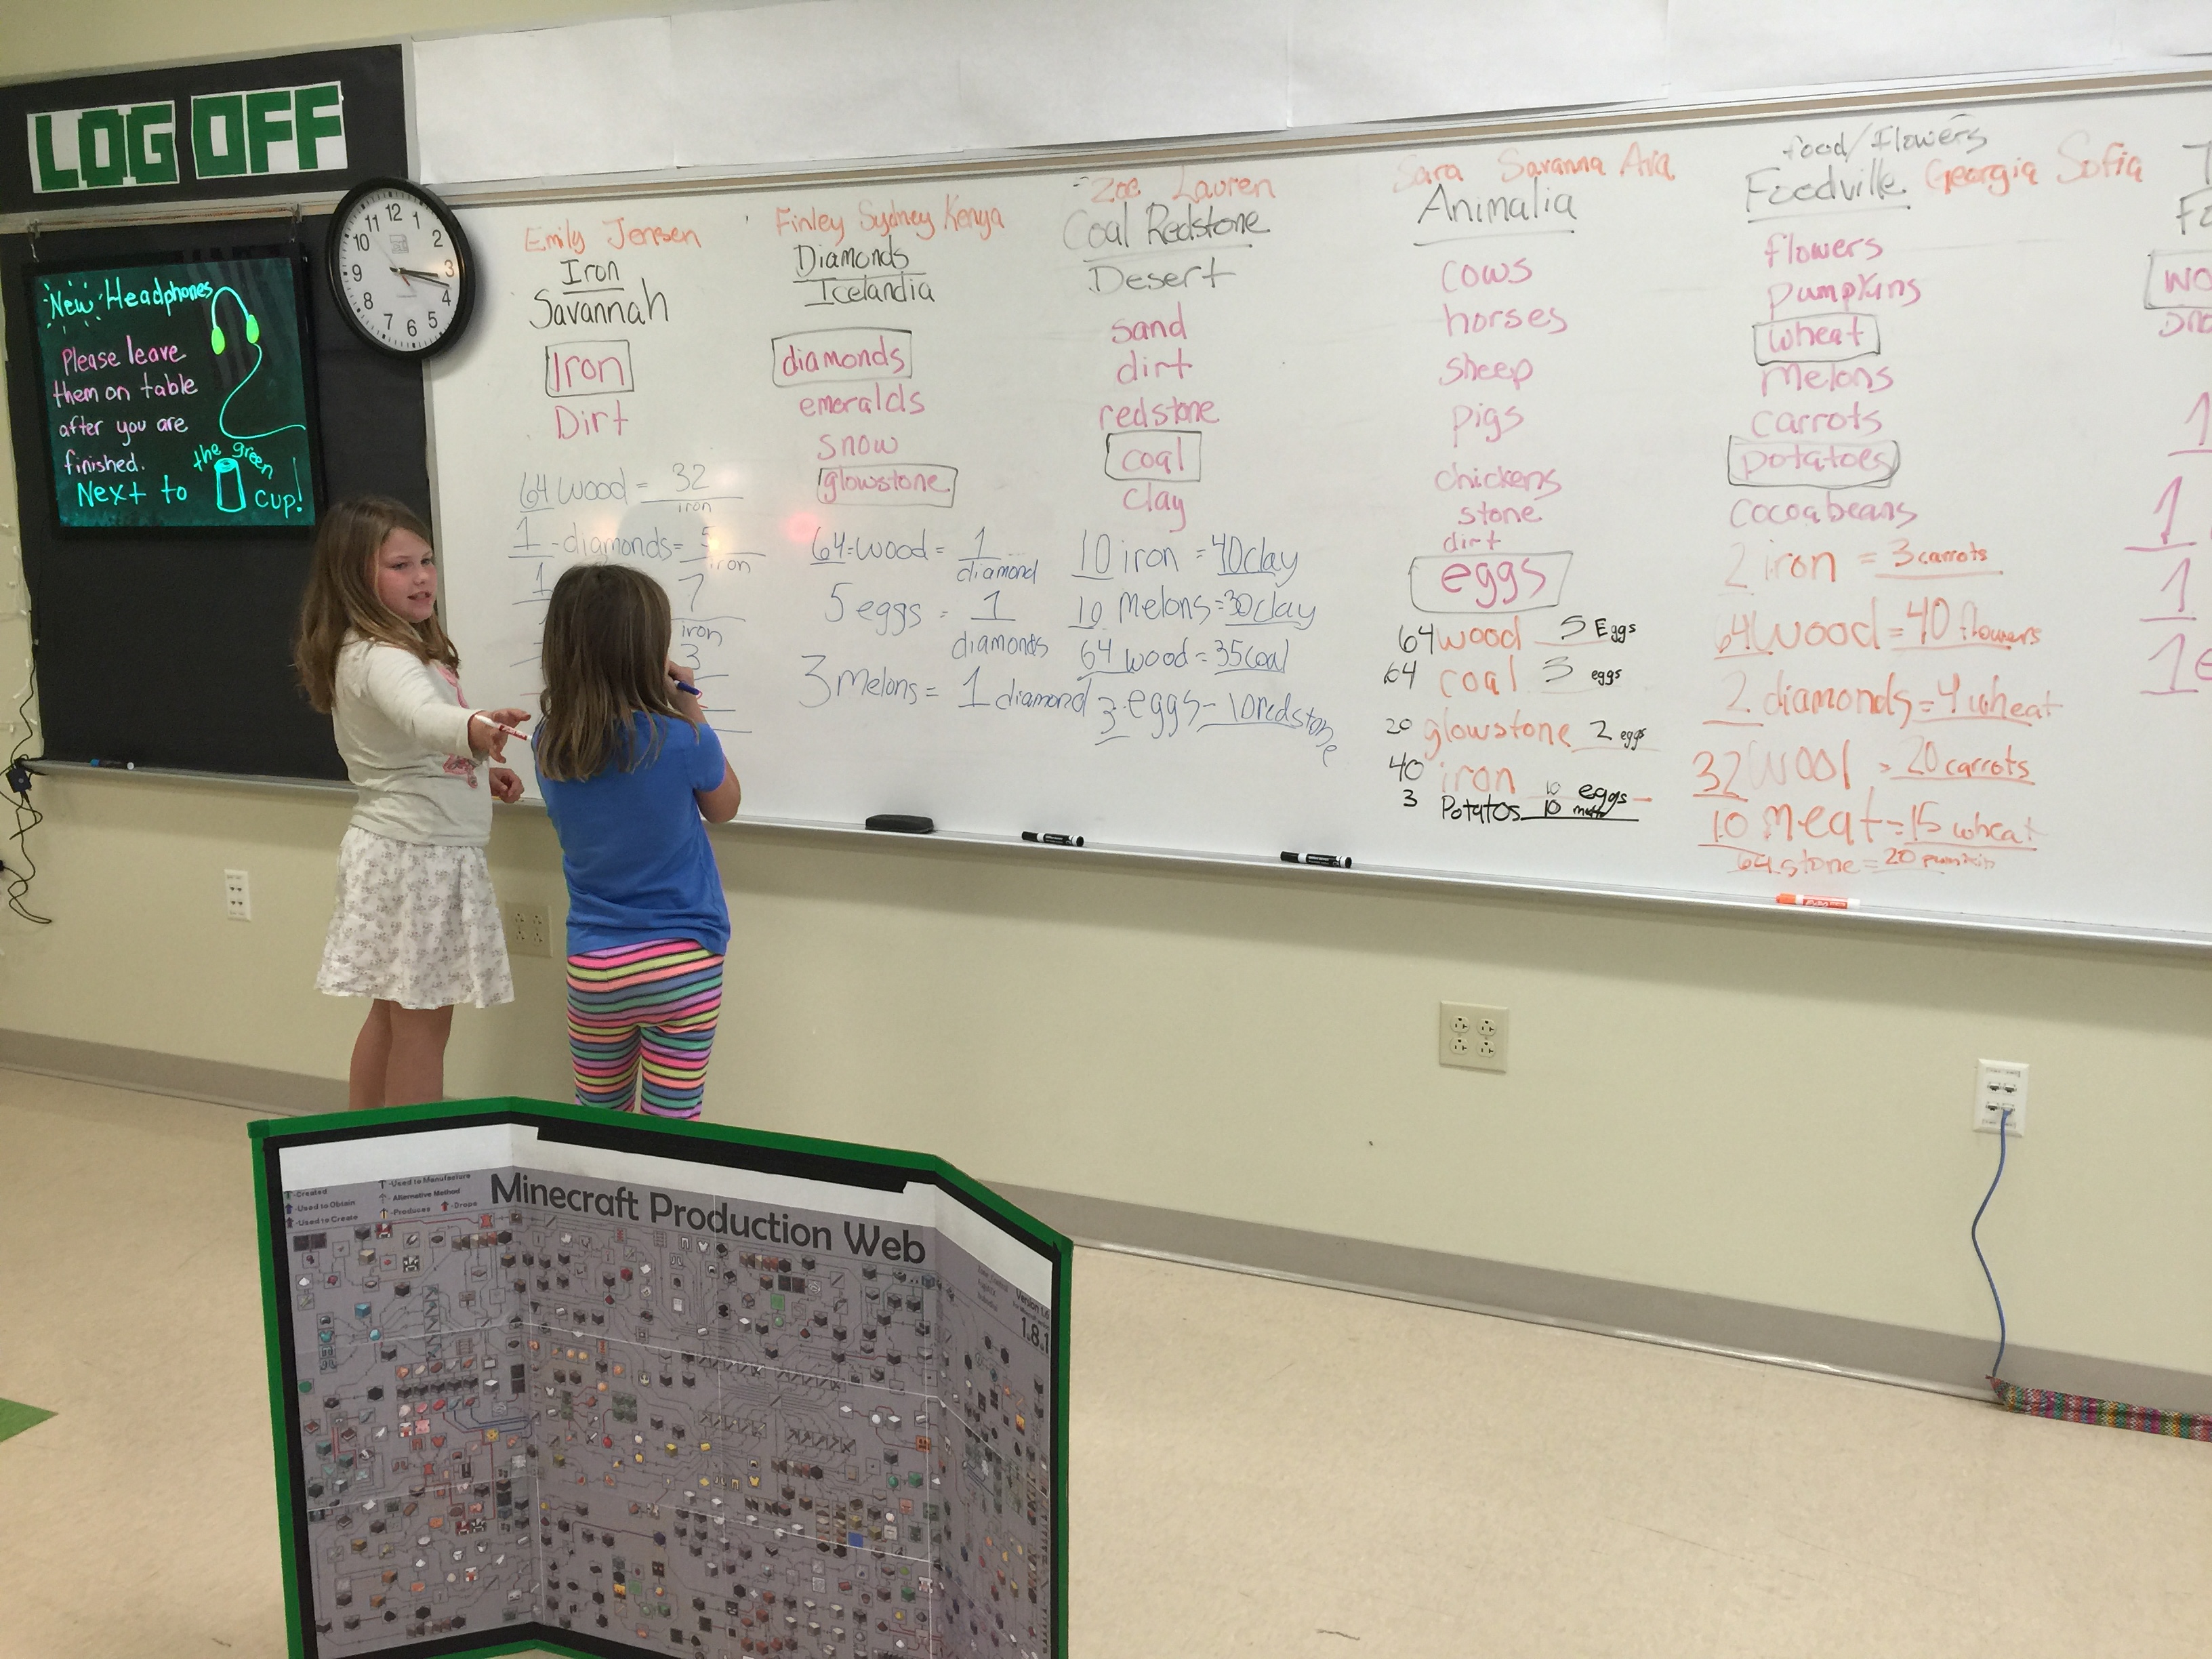 LOG OFF
12
1
2
3
4
5
6
7
8
9
10
11
New Headphones
Please leave
them on table
after you are
finished.
Next to
the green
cup!
Emily Jensen
Iron
Savannah
Iron
Dirt
64 wood = 32
iron
1 - diamonds = 5
iron
1
7
iron
3
Finley Sydney Kenya
Diamonds
Icelandia
diamonds
emeralds
snow
glowstone
64 = wood = 1
diamond
5 eggs = 1
diamonds
3 melons = 1 diamond
Zoe Lauren
Coal Redstone
Desert
sand
dirt
redstone
coal
clay
10 iron = 40 clay
10 Melons = 30 clay
64 wood = 35 coal
3 eggs - 10 redstone
Sara Savanna Ava
Animalia
cows
horses
sheep
pigs
chickens
stone
dirt
eggs
64 wood 5 Eggs
64 coal 3 eggs
20 glowstone 2 eggs
40 iron 10 eggs
3 Potatos 10
food/Flowers
Foodville Georgia Sofia
flowers
pumpkins
wheat
melons
carrots
potatoes
cocoabeans
2 iron = 3 carrots
64 wood = 40 flowers
2 diamonds = 4 wheat
32 wool = 20 carrots
10 meat = 15 wheat
64 stone = 20
1
1
1
Minecraft Production Web
-Created
-Used to Obtain
-Used to Create
-Used to Manufacture
-Alternative Method
-Produces
-Drops
Version 1.6
1.8.1